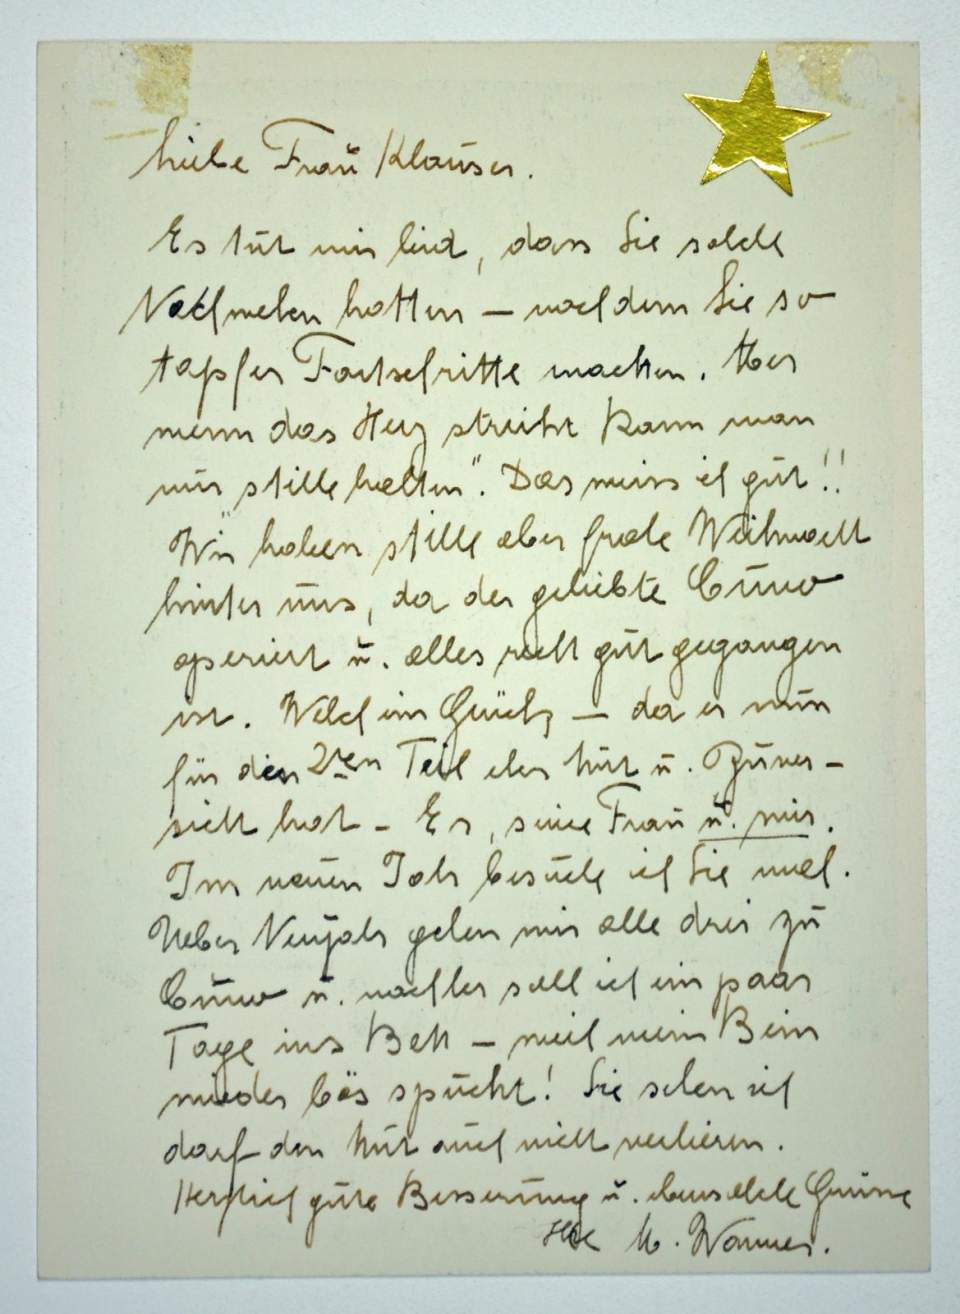 Liebe Frau Klauser.
Es tut mir leid, dass Sie solche
Nachwehen hatten – nachdem Sie so
tapfer Fortschritte machten. Aber
wenn das Herz streikt kann man
nur stille halten". Das weiss ich gut!!
Wir haben stille aber frohe Weihnacht
hinter uns, da der geliebte Cuno
operiert u. alles recht gut gegangen
ist. Welch ein Glück – da er nun
für den 2ten Teil eher Mut u. Zuver-
sicht hat – Er, seine Frau u. wir.
Im neuen Jahr besuche ich Sie mal.
Ueber Neujahr gehen wir alle drei zu
Cuno u. nachher soll ich ein paar
Tage ins Bett – weil mein Bein
wieder bös spuckt! Sie sehen ich
darf den Mut auch nicht verlieren.
Herzlich gute Besserung u. ebensolche Grüsse
Ihre M. Wanner.